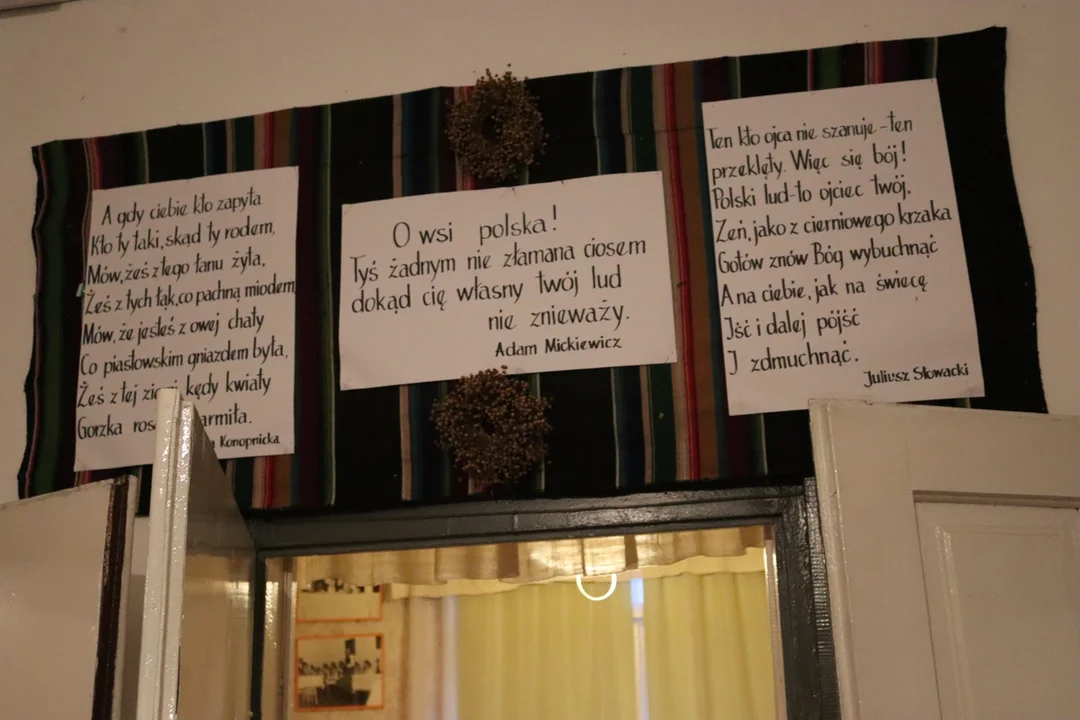 A gdy ciebie kto zapyta
Kto ty taki, skąd ty rodem,
Mów, żeś z tego łanu żyta,
Żeś z tych łąk, co pachną miodem
Mów, że jesteś z owej chaty
Co piastowskim gniazdem była,
Żeś z tej kędy kwiaty
Gorzka
Konopnicka
O wsi polska!
Tyś żadnym nie złamana ciosem
dokąd cię własny twój lud
nie znieważy.
Adam Mickiewicz
Ten kto ojca nie szanuje - ten
przeklęty. Więc się bój!
Polski lud - to ojciec twój.
Zeń, jako z cierniowego krzaka
Gotów znów Bóg wybuchnąć
A na ciebie, jak na świecę
Iść i dalej pójść
I zdmuchnąć.
Juliusz Słowacki